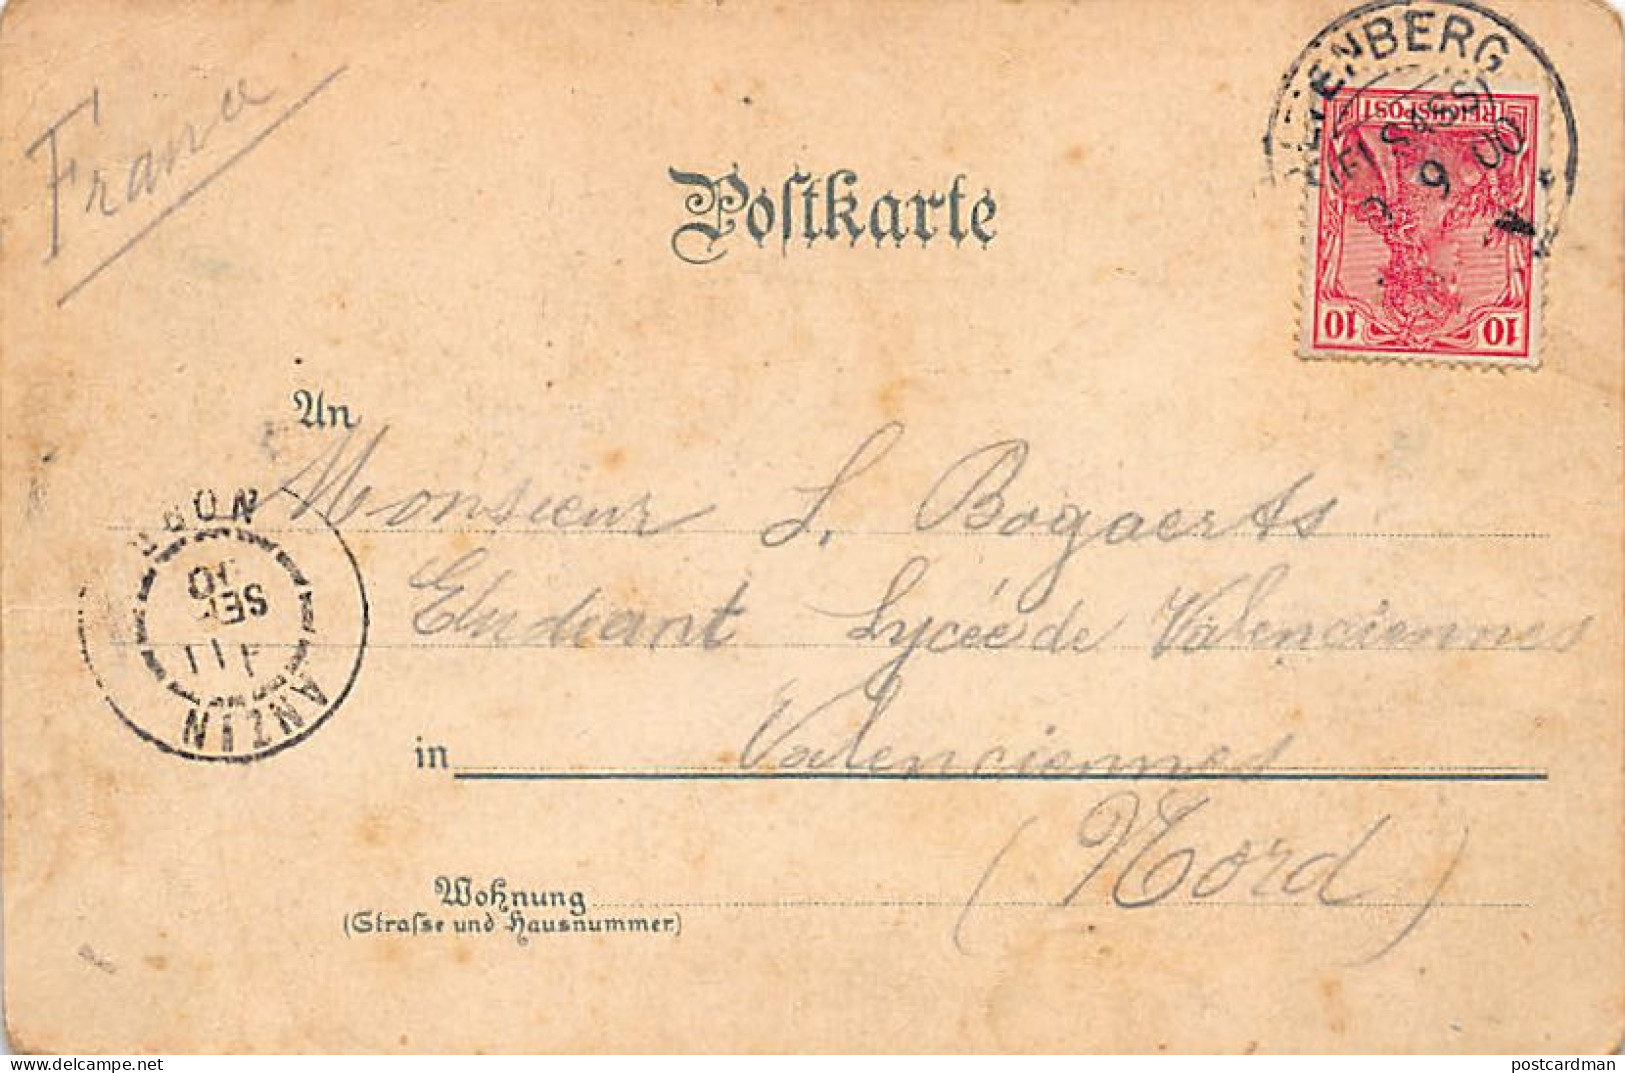 France
Postkarte
ENBERG
(ELSASS)
9 00
REICHSPOST
10 10
An
Monsieur L. Bogaerts
Etudiant Lycée de Valenciennes
in Valenciennes
(Nord)
Wohnung
(Straſse und Hausnummer)
NORD
11
SEP
00
ANZIN
postcardman